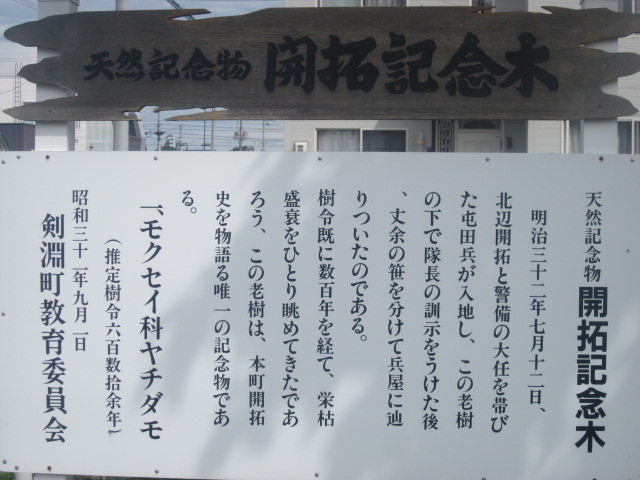 天然記念物 開拓記念木
天然記念物 開拓記念木
明治三十二年七月十二日、
北辺開拓と警備の大任を帯び
た屯田兵が入地し、この老樹
の下で隊長の訓示をうけた後
、丈余の笹を分けて兵屋に辿
りついたのである。
樹令既に数百年を経て、栄枯
盛衰をひとり眺めてきたであ
ろう、この老樹は、本町開拓
史を物語る唯一の記念物であ
る。
一、モクセイ科ヤチダモ
(推定樹令六百数拾余年)
昭和三十二年九月一日
剣淵町教育委員会